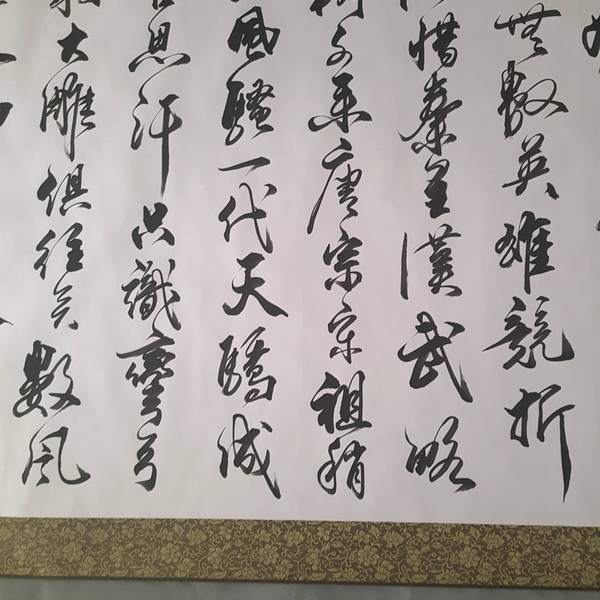 無數英雄競折
惜秦皇漢武略
文采唐宗宋祖稍
風騷一代天驕成
思汗只識彎弓
大雕俱往矣數風